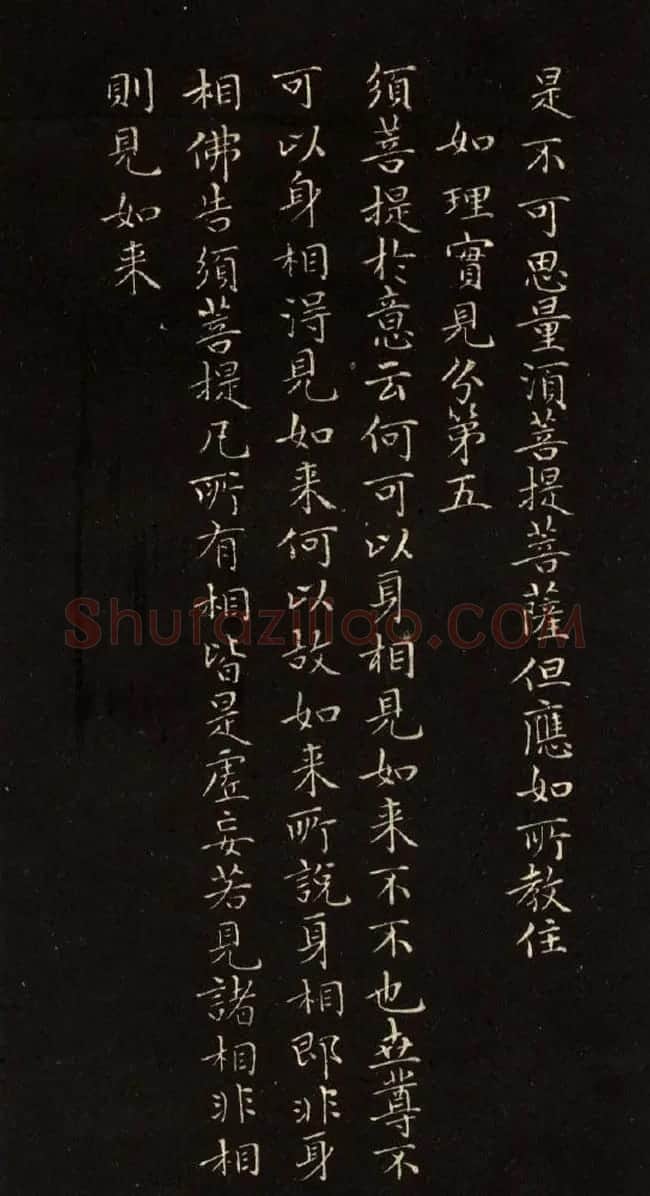 是不可思量須菩提菩薩但應如所教住
如理實見分第五
須菩提於意云何可以身相見如来不不也世尊不
可以身相得見如来何以故如来所說身相即非身
相佛告須菩提凡所有相皆是虛妄若見諸相非相
則見如来
Shufaziliao.COM